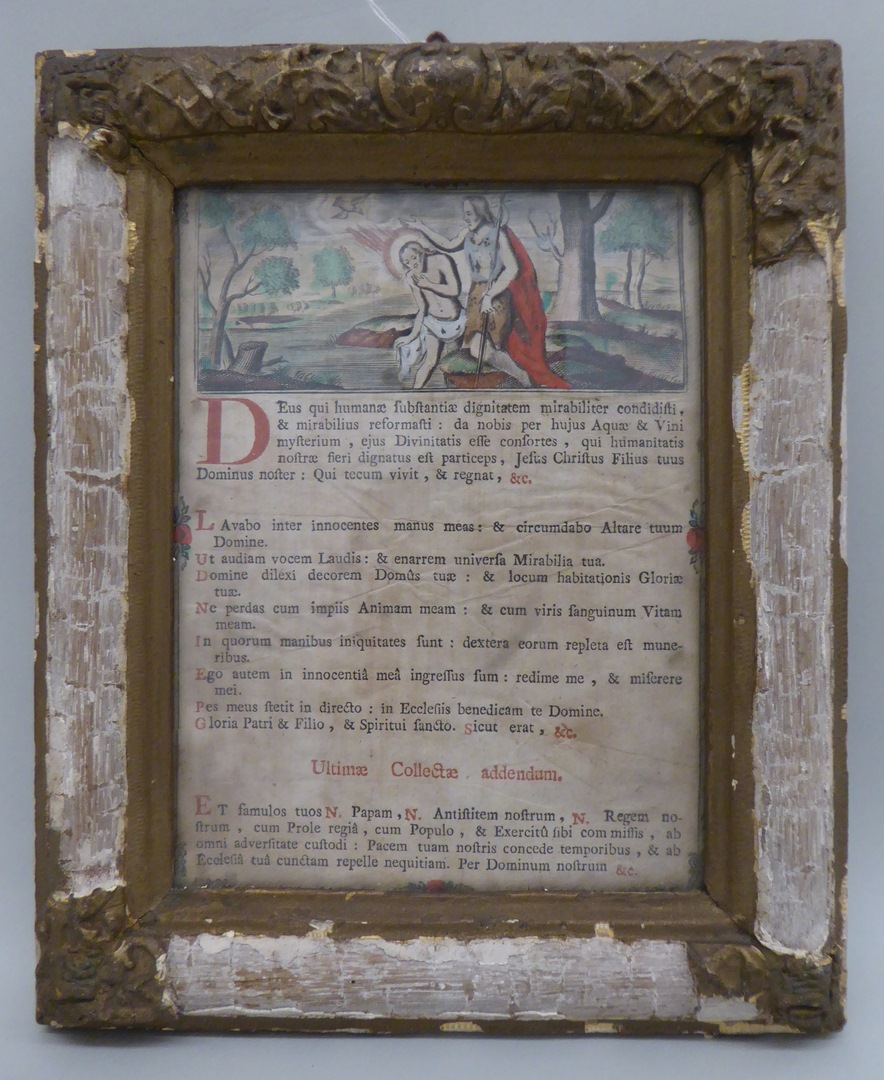 DEus qui humanæ ſubſtantiæ dignitatem mirabiliter condidiſti,
& mirabilius reformaſti : da nobis per hujus Aquæ & Vini
myſterium , ejus Divinitatis eſſe conſortes , qui humanitatis
noſtræ fieri dignatus eſt particeps, Jeſus Chriſtus Filius tuus
Dominus noſter : Qui tecum vivit , & regnat, &c.
LAvabo inter innocentes manus meas : & circumdabo Altare tuum
Domine.
Ut audiam vocem Laudis : & enarrem univerſa Mirabilia tua.
Domine dilexi decorem Domûs tuæ : & locum habitationis Gloriæ
tuæ.
Ne perdas cum impiis Animam meam : & cum viris ſanguinum Vitam
meam.
In quorum manibus iniquitates ſunt : dextera eorum repleta eſt mune-
ribus.
Ego autem in innocentiâ meâ ingreſſus ſum : redime me , & miſerere
mei.
Pes meus ſtetit in directo : in Eccleſiis benedicam te Domine.
Gloria Patri & Filio , & Spiritui ſancto. Sicut erat , &c.
Ultimæ Collectæ addendum.
ET famulos tuos N. Papam , N. Antiſtitem noſtrum , N. Regem no-
ſtrum , cum Prole regiâ , cum Populo , & Exercitû ſibi commiſſis , ab
omni adverſitate cuſtodi : Pacem tuam noſtris concede temporibus , & ab
Eccleſiâ tuâ cunctam repelle nequitiam. Per Dominum noſtrum &c.